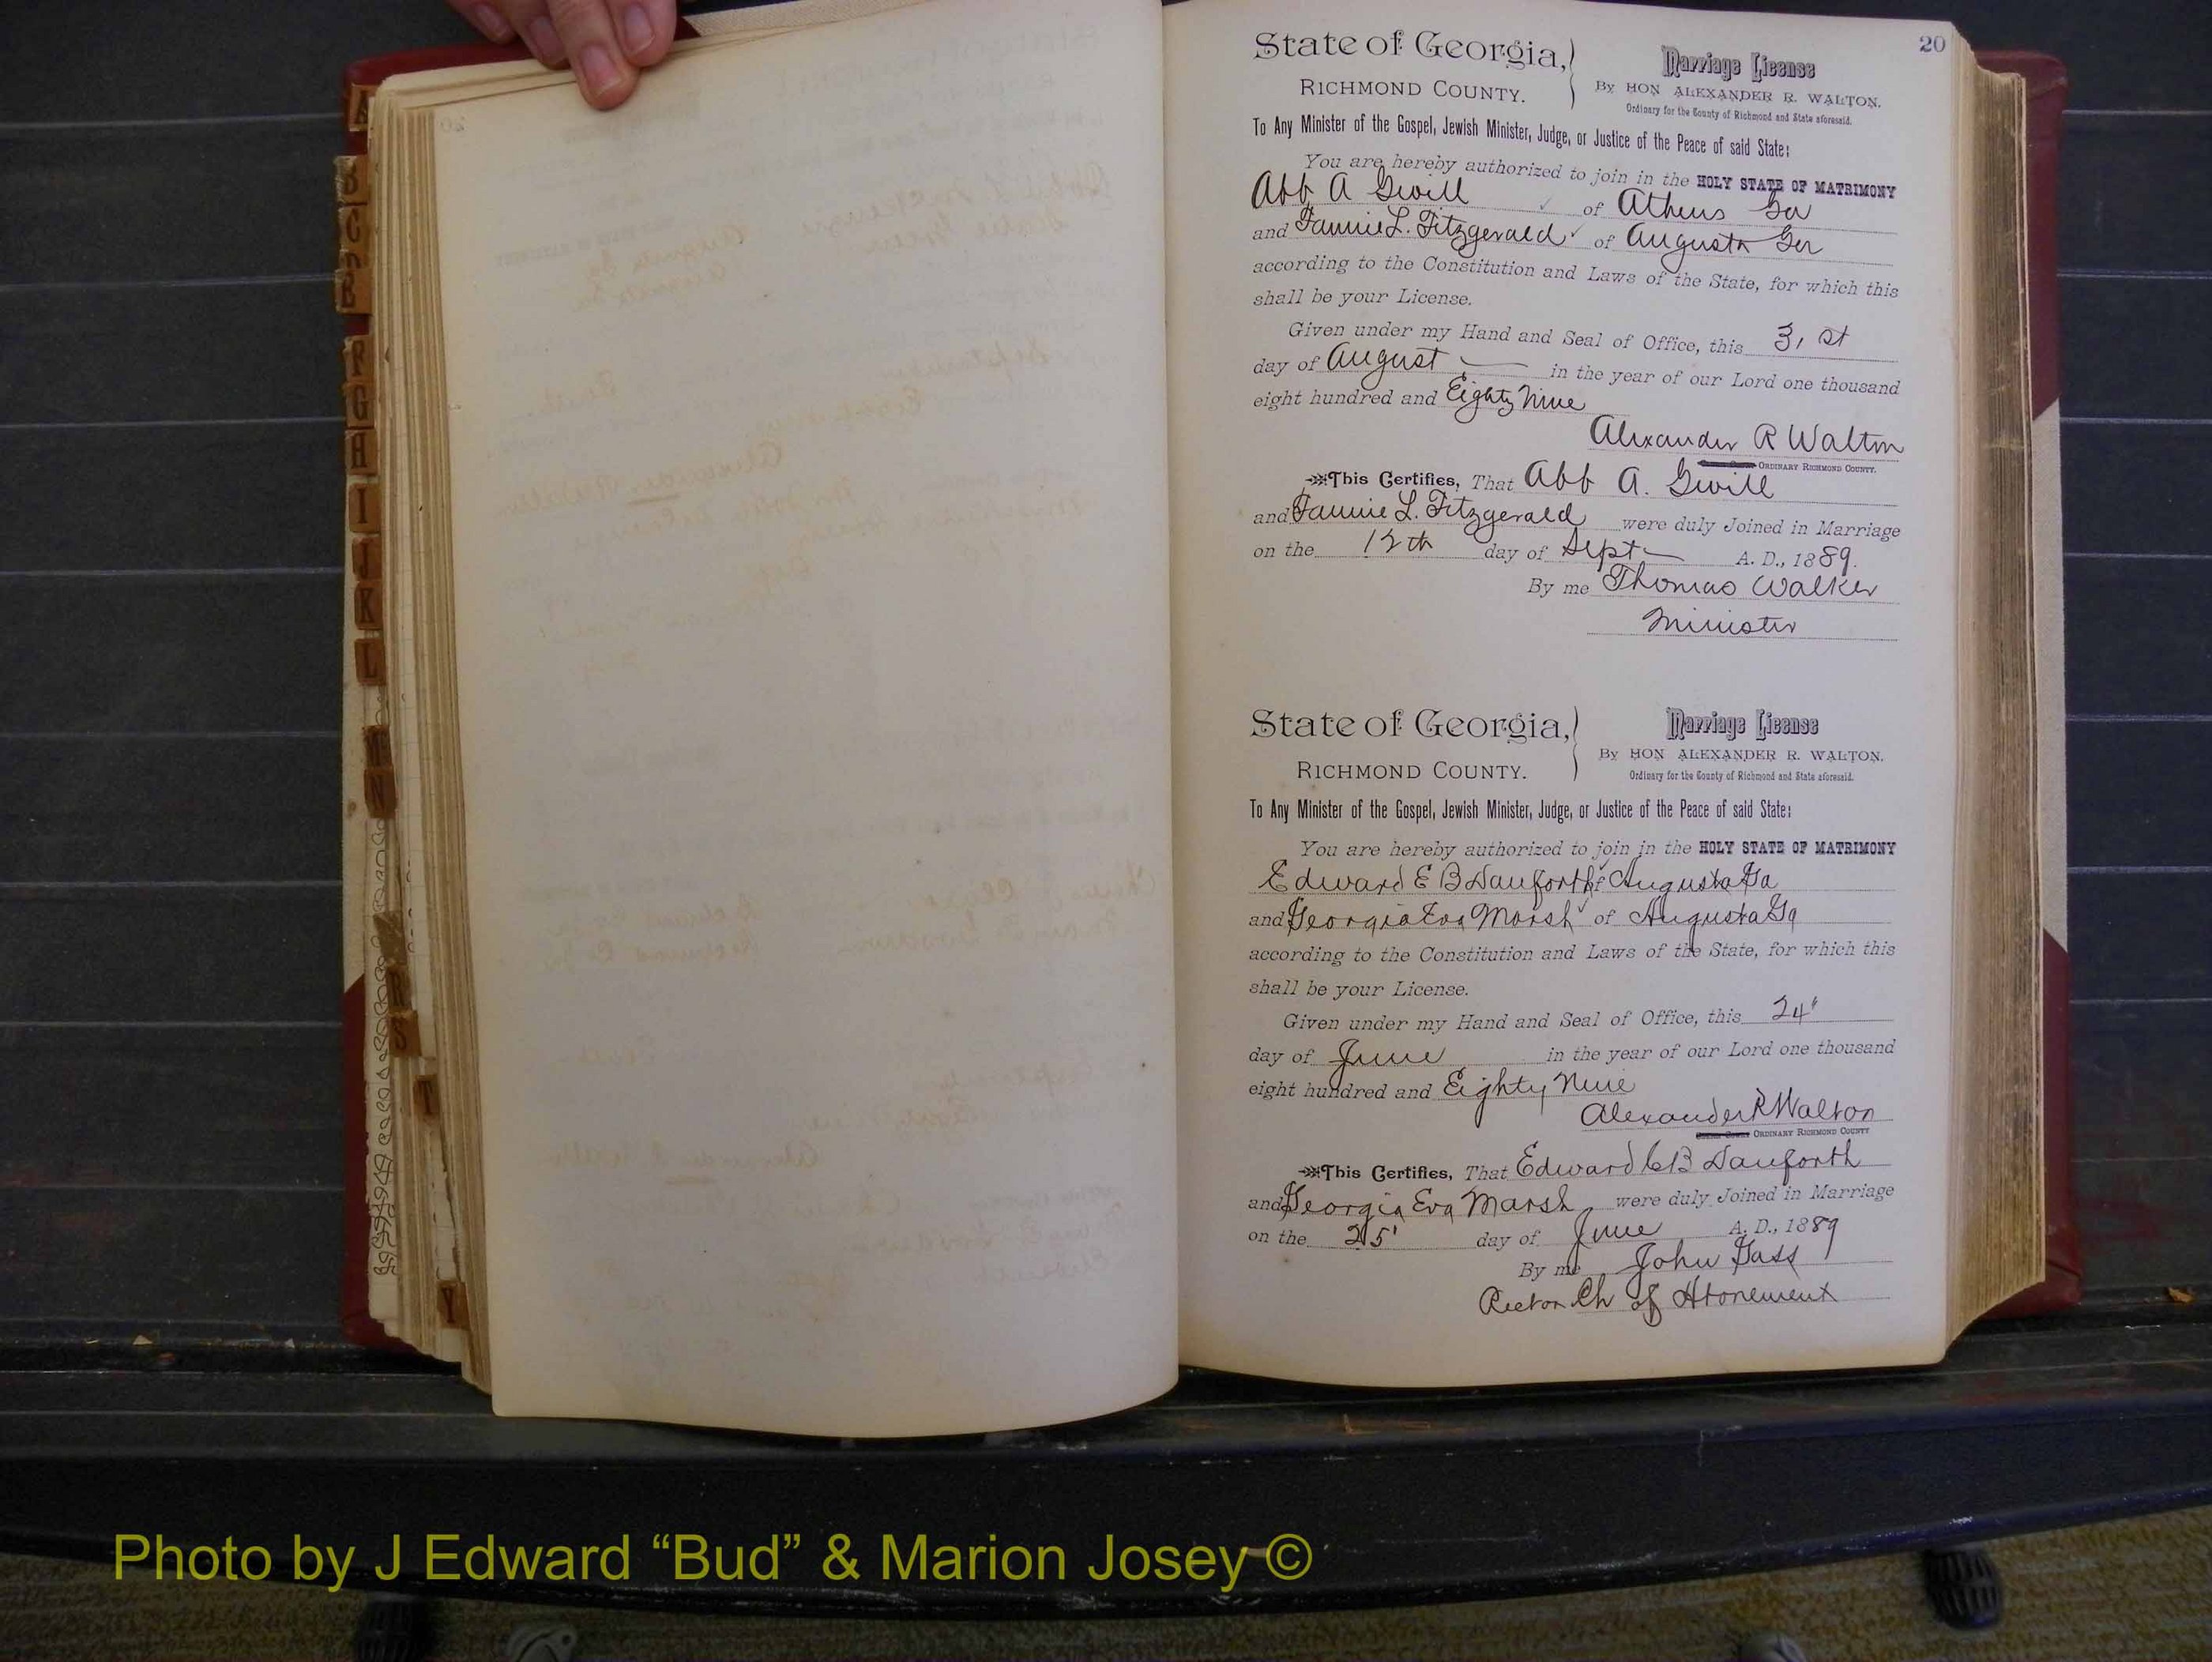 20
State of Georgia,
RICHMOND COUNTY.
Marriage License
By HON ALEXANDER R. WALTON.
Ordinary for the County of Richmond and State aforesaid.
To Any Minister of the Gospel, Jewish Minister, Judge, or Justice of the Peace of said State:
You are hereby authorized to join in the HOLY STATE OF MATRIMONY
Abb A Gwill of Athens Ga
and Fannie L. Fitzgerald of Augusta Ga
according to the Constitution and Laws of the State, for which this
shall be your License.
Given under my Hand and Seal of Office, this 31 st
day of August in the year of our Lord one thousand
eight hundred and Eighty Nine
Alexander R Walton
ORDINARY RICHMOND COUNTY.
This Certifies, That Abb A. Gwill
and Fannie L. Fitzgerald were duly Joined in Marriage
on the 12th day of Sept A. D., 1889.
By me Thomas Walker
Minister
State of Georgia,
RICHMOND COUNTY.
Marriage License
By HON ALEXANDER R. WALTON.
Ordinary for the County of Richmond and State aforesaid.
To Any Minister of the Gospel, Jewish Minister, Judge, or Justice of the Peace of said State:
You are hereby authorized to join in the HOLY STATE OF MATRIMONY
Edward E B Danforth of Augusta Ga
and Georgia Eva Marsh of Augusta Ga
according to the Constitution and Laws of the State, for which this
shall be your License.
Given under my Hand and Seal of Office, this 24"
day of June in the year of our Lord one thousand
eight hundred and Eighty Nine
Alexander R Walton
ORDINARY RICHMOND COUNTY
This Certifies, That Edward B Danforth
and Georgia Eva Marsh were duly Joined in Marriage
on the 25' day of June A. D., 1889
By me John Gass
Rector Ch of Atonement
A
B
C
F
G
H
I
J
K
L
N
R
S
T
Y
Photo by J Edward “Bud” & Marion Josey ©